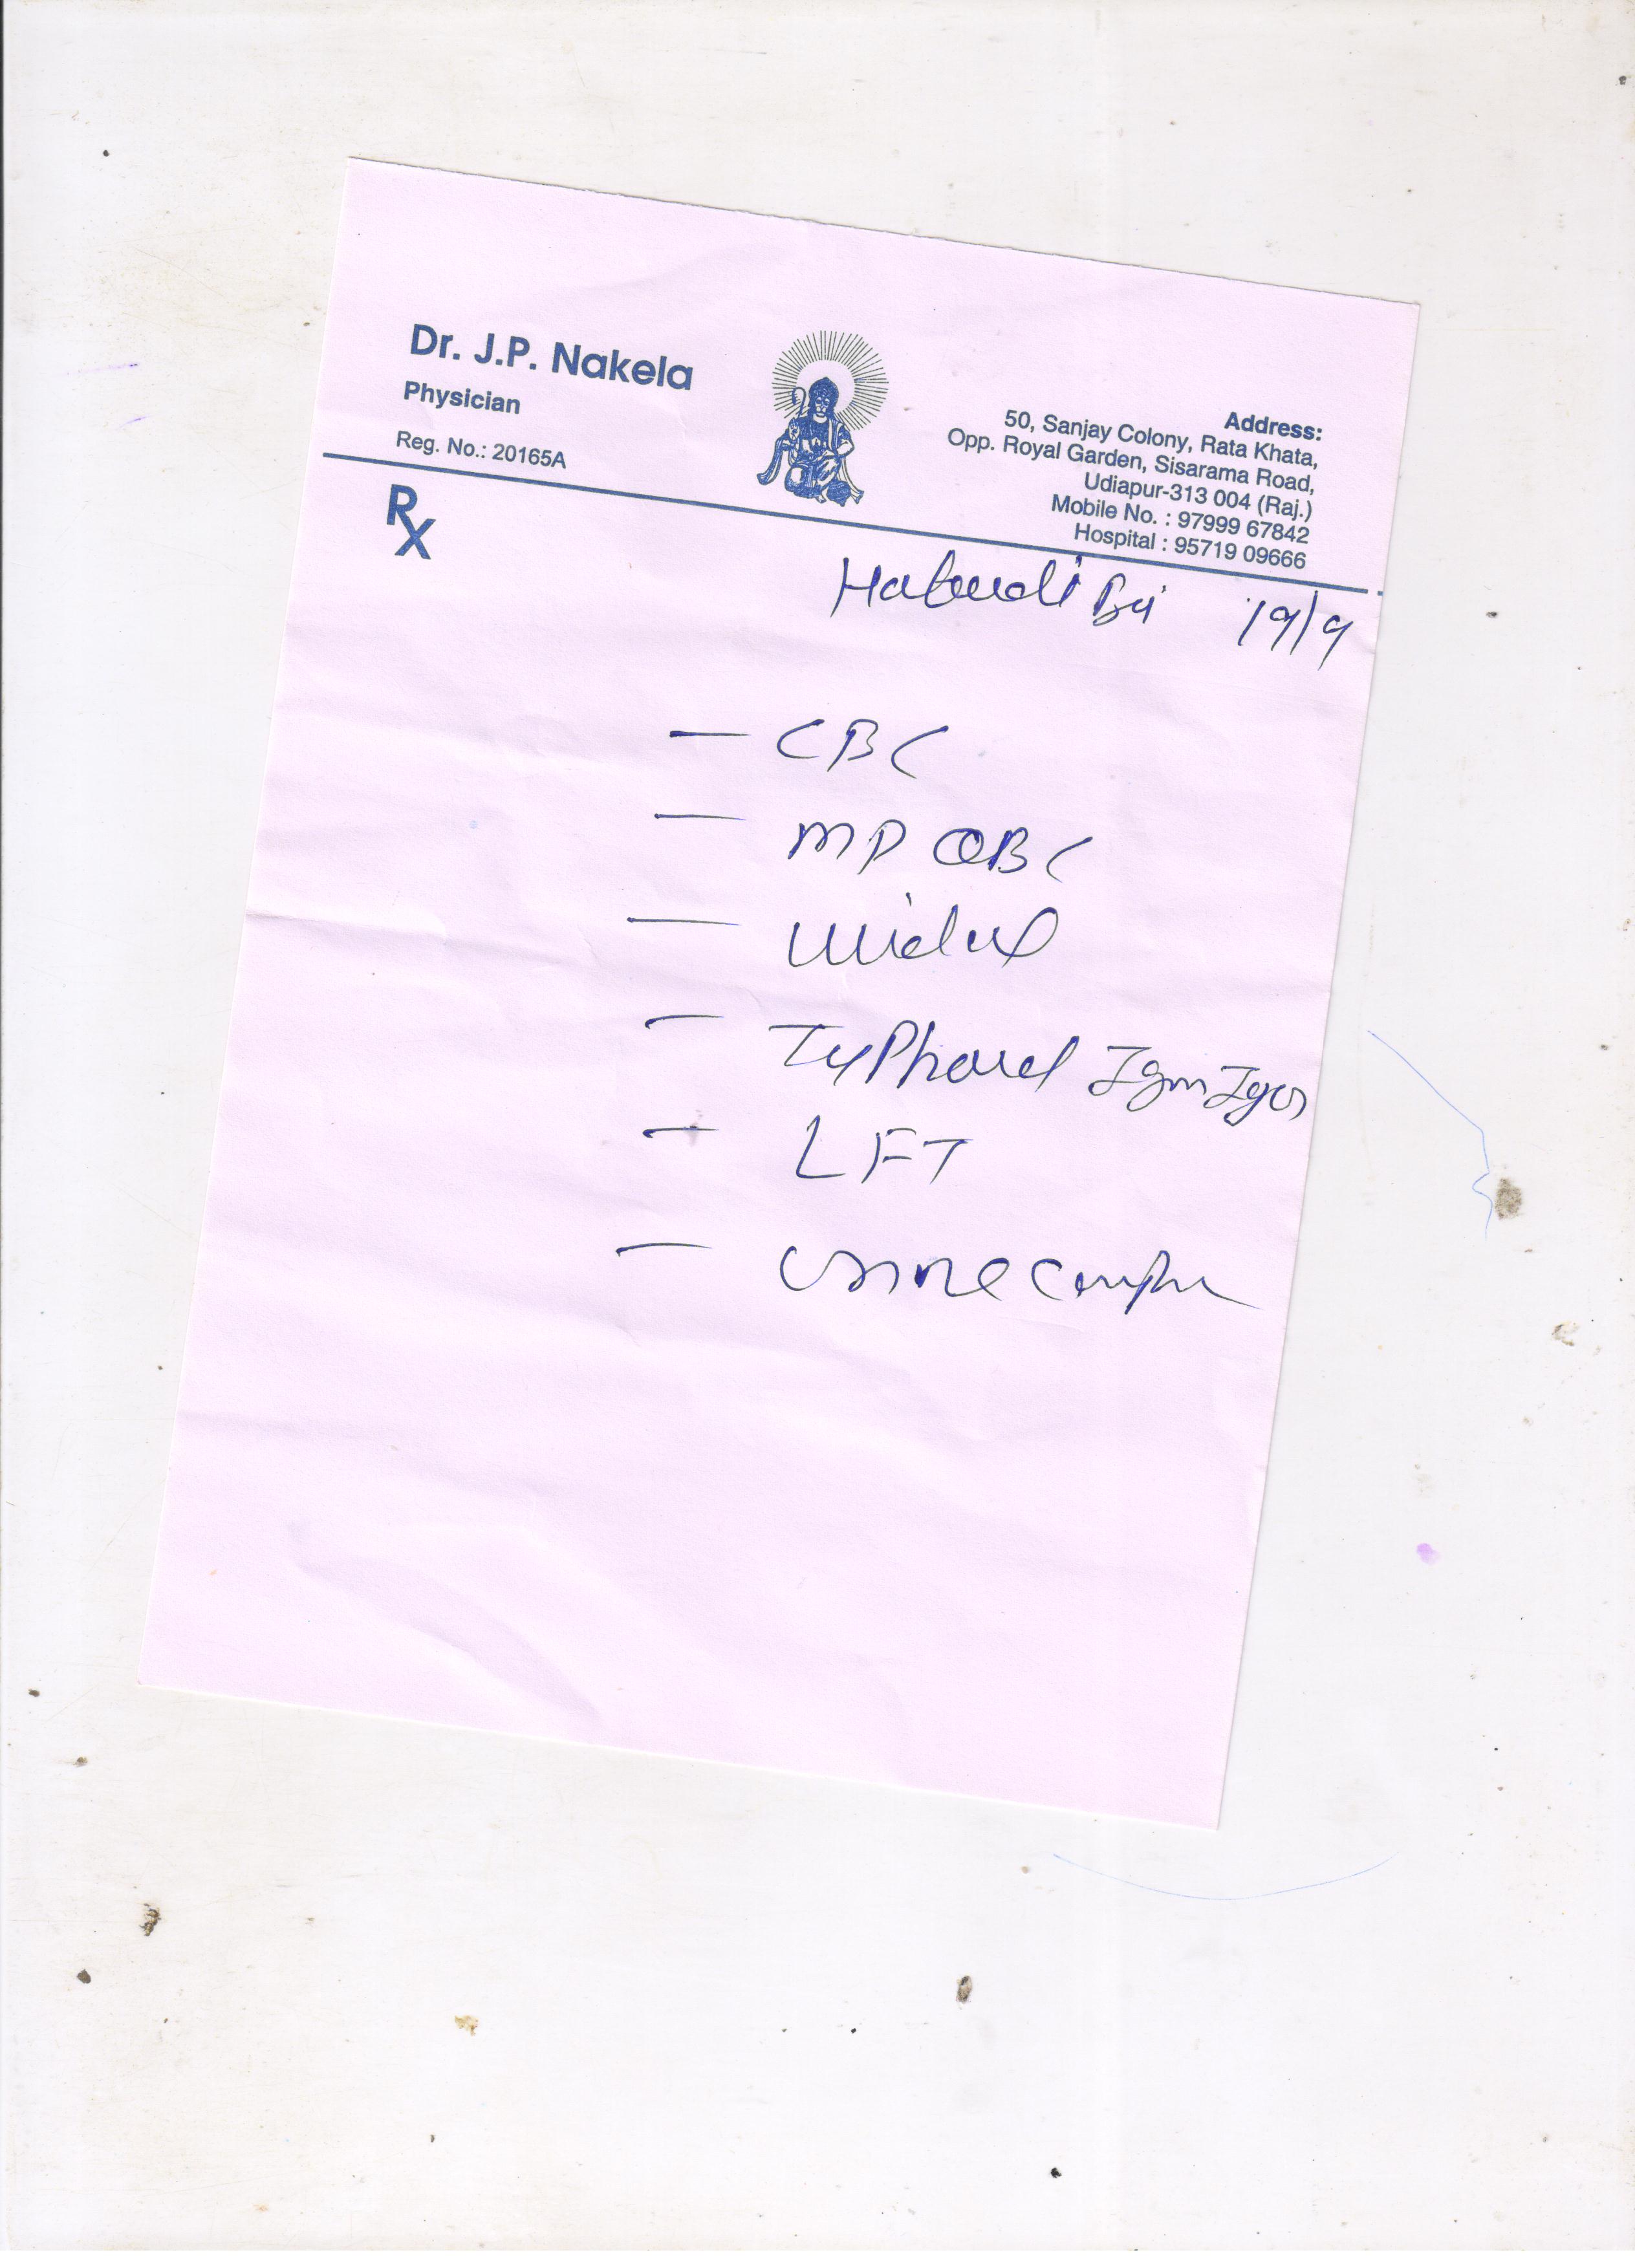 Dr. J.P. Nakela
Physician
Reg. No.: 20165A
Address:
50, Sanjay Colony, Rata Khata,
Opp. Royal Garden, Sisarama Road,
Udiapur-313 004 (Raj.)
Mobile No. : 97999 67842
Hospital : 95719 09666
Rx
19/9
- CBC
- MP QBC
- widal
- Typhoid Igm IgG
- LFT
- Urine